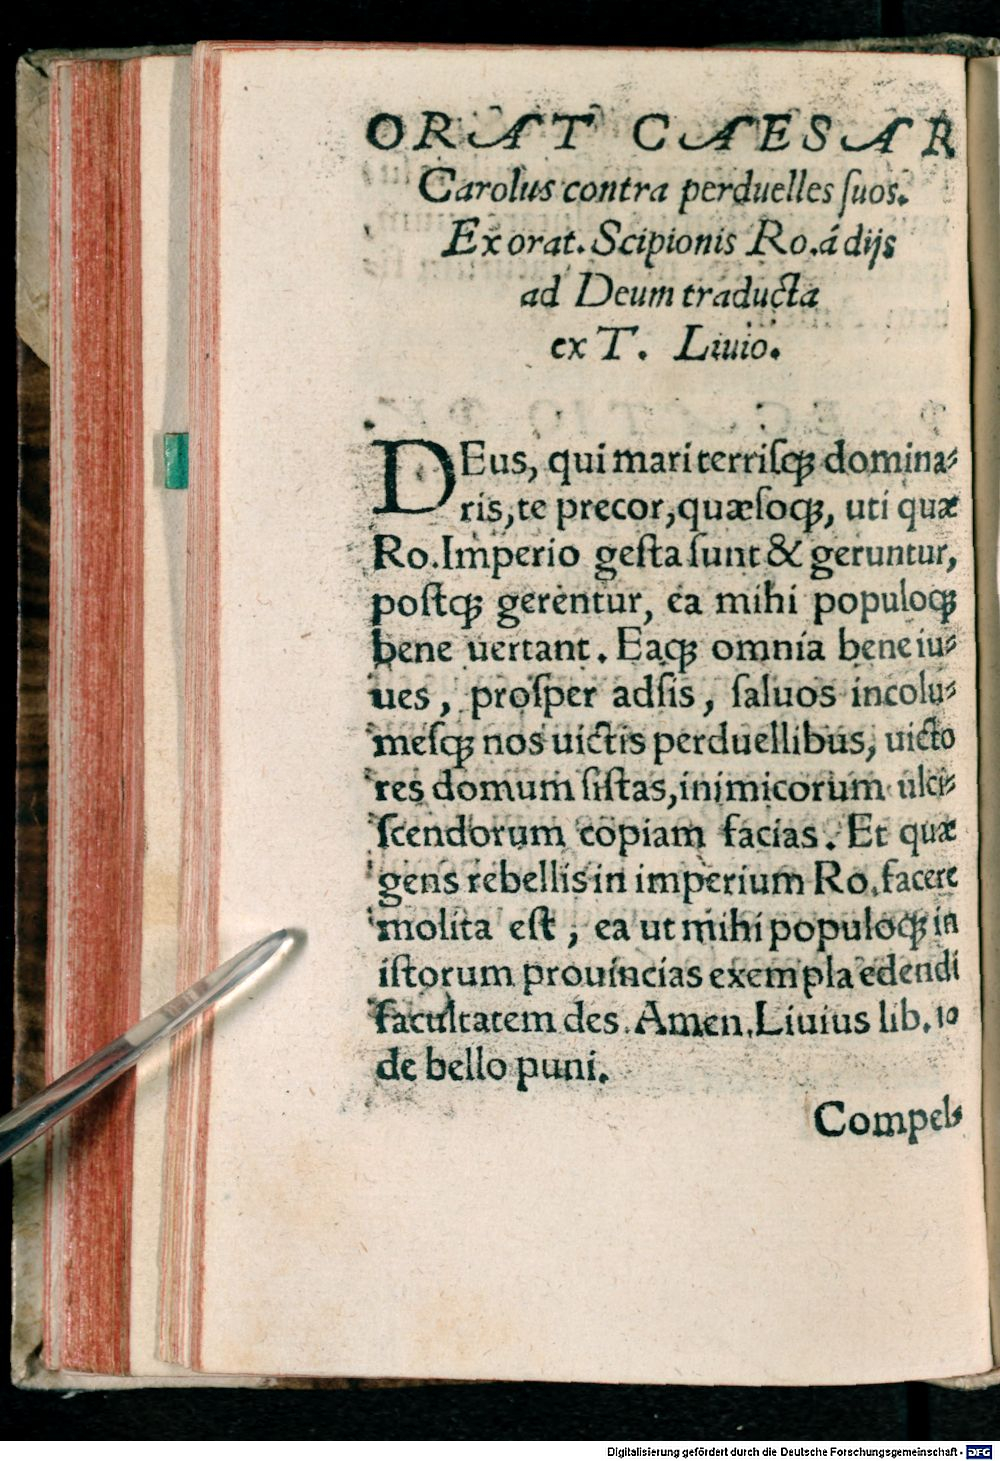 ORAT CAESAR
Carolus contra perduelles ſuos.
Ex orat. Scipionis Ro. á dijs
ad Deum traducta
ex T. Liuio.
DEus, qui mari terriſqꝫ domina-
ris, te precor, quæſoqꝫ, uti quæ
Ro. Imperio geſta ſunt & geruntur,
poſtqꝫ gerentur, ea mihi populoqꝫ
bene uertant. Eaqꝫ omnia bene iu-
ues, proſper adſis, ſaluos incolu-
meſqꝫ nos uictis perduellibus, uicto
res domum ſiſtas, inimicorum ulci-
ſcendorum copiam facias. Et quæ
gens rebellis in imperium Ro. facere
molita eſt, ea ut mihi populoqꝫ in
iſtorum prouincias exempla edendi
facultatem des. Amen. Liuius lib. 10
de bello puni.
Compel-
Digitalisierung gefördert durch die Deutsche Forschungsgemeinschaft - DFG